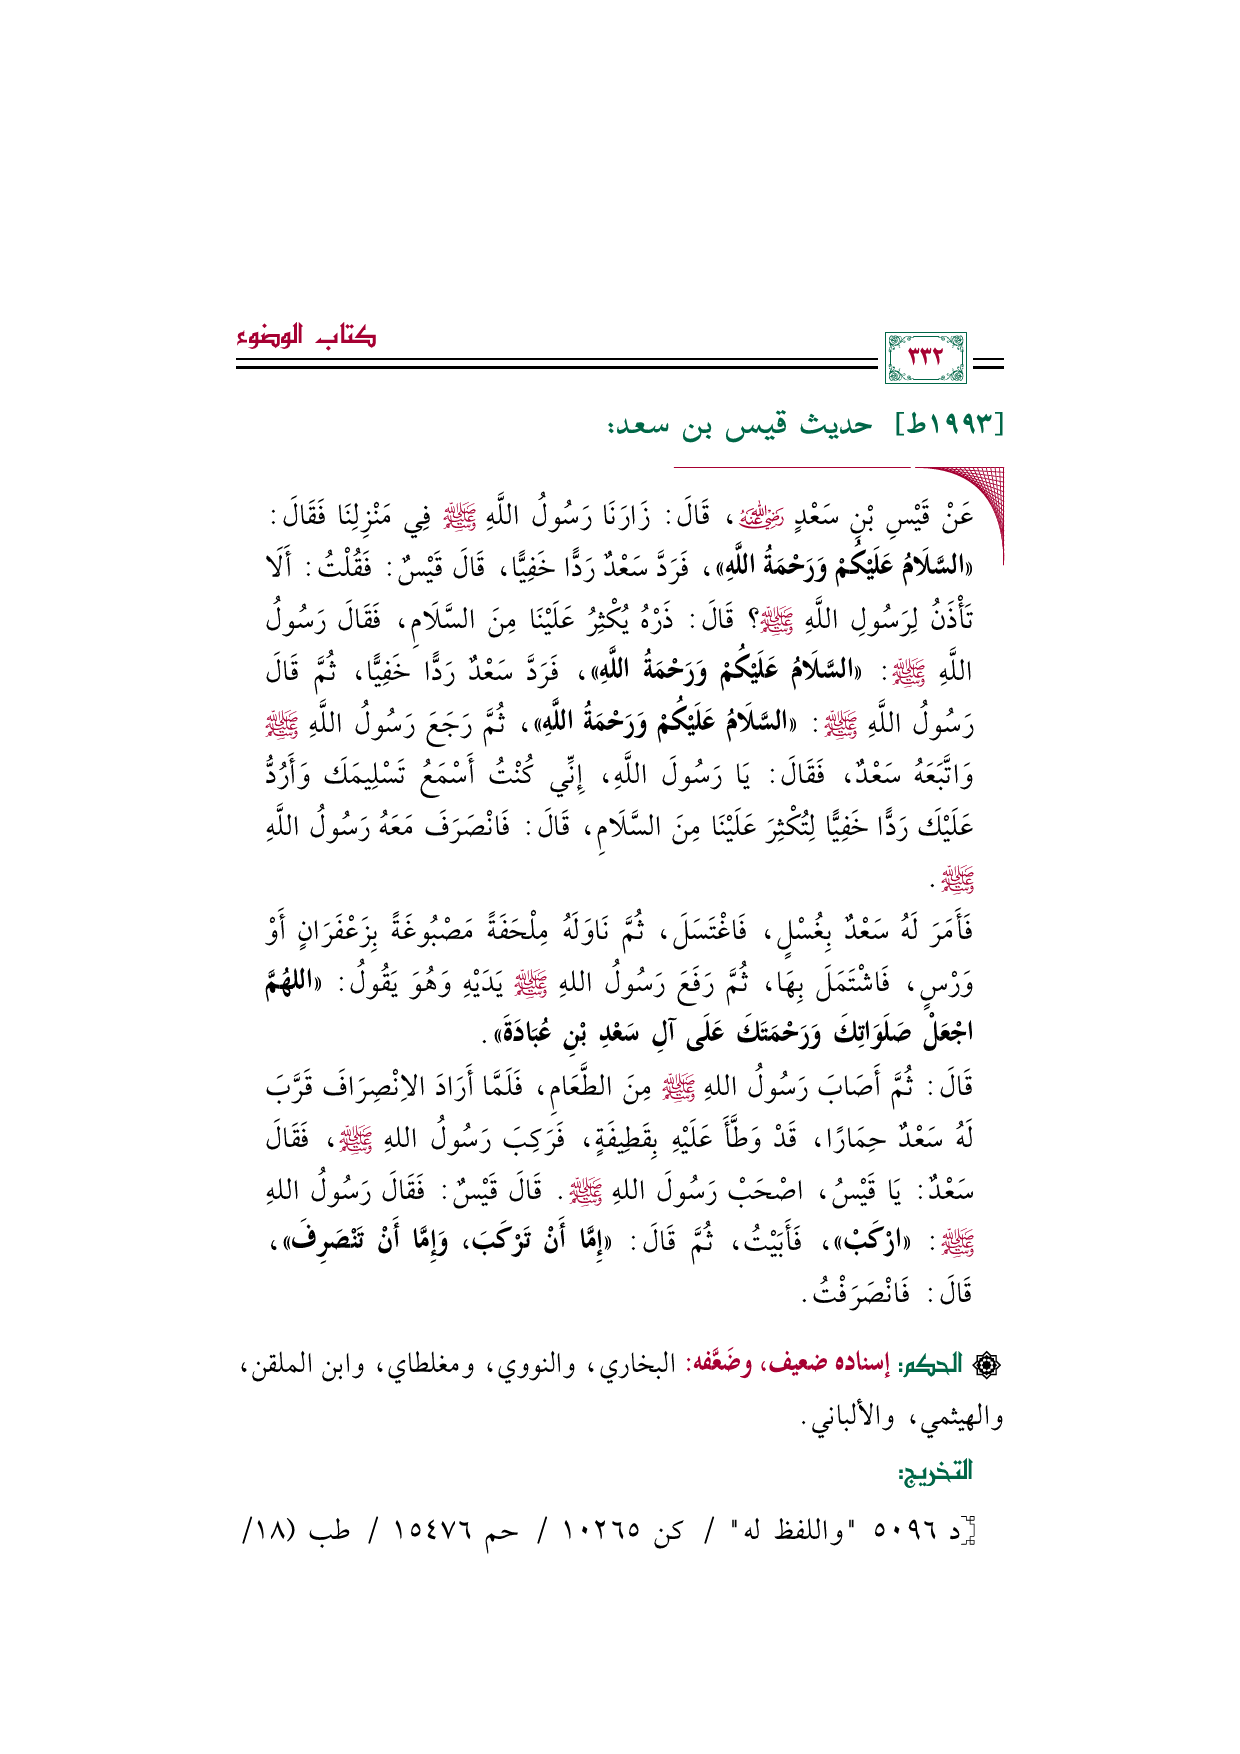 كتاب الوضوء
٣٣٢
[١٩٩٣ط] حديث قيس بن سعد:
عَنْ قَيْسِ بْنِ سَعْدٍ رضي الله عنه، قَالَ: زَارَنَا رَسُولُ اللَّهِ ﷺ فِي مَنْزِلِنَا فَقَالَ:
«السَّلَامُ عَلَيْكُمْ وَرَحْمَةُ اللَّهِ»، فَرَدَّ سَعْدٌ رَدًّا خَفِيًّا، قَالَ قَيْسٌ: فَقُلْتُ: أَلَا
تَأْذَنُ لِرَسُولِ اللَّهِ ﷺ؟ قَالَ: ذَرْهُ يُكْثِرُ عَلَيْنَا مِنَ السَّلَامِ، فَقَالَ رَسُولُ
اللَّهِ ﷺ: «السَّلَامُ عَلَيْكُمْ وَرَحْمَةُ اللَّهِ»، فَرَدَّ سَعْدٌ رَدًّا خَفِيًّا، ثُمَّ قَالَ
رَسُولُ اللَّهِ ﷺ: «السَّلَامُ عَلَيْكُمْ وَرَحْمَةُ اللَّهِ»، ثُمَّ رَجَعَ رَسُولُ اللَّهِ ﷺ
وَاتَّبَعَهُ سَعْدٌ، فَقَالَ: يَا رَسُولَ اللَّهِ، إِنِّي كُنْتُ أَسْمَعُ تَسْلِيمَكَ وَأَرُدُّ
عَلَيْكَ رَدًّا خَفِيًّا لِتُكْثِرَ عَلَيْنَا مِنَ السَّلَامِ، قَالَ: فَانْصَرَفَ مَعَهُ رَسُولُ اللَّهِ
ﷺ.
فَأَمَرَ لَهُ سَعْدٌ بِغُسْلٍ، فَاغْتَسَلَ، ثُمَّ نَاوَلَهُ مِلْحَفَةً مَصْبُوغَةً بِزَعْفَرَانٍ أَوْ
وَرْسٍ، فَاشْتَمَلَ بِهَا، ثُمَّ رَفَعَ رَسُولُ اللهِ ﷺ يَدَيْهِ وَهُوَ يَقُولُ: «اللهُمَّ
اجْعَلْ صَلَوَاتِكَ وَرَحْمَتَكَ عَلَى آلِ سَعْدِ بْنِ عُبَادَةَ».
قَالَ: ثُمَّ أَصَابَ رَسُولُ اللهِ ﷺ مِنَ الطَّعَامِ، فَلَمَّا أَرَادَ الِانْصِرَافَ قَرَّبَ
لَهُ سَعْدٌ حِمَارًا، قَدْ وَطَّأَ عَلَيْهِ بِقَطِيفَةٍ، فَرَكِبَ رَسُولُ اللهِ ﷺ، فَقَالَ
سَعْدٌ: يَا قَيْسُ، اصْحَبْ رَسُولَ اللهِ ﷺ. قَالَ قَيْسٌ: فَقَالَ رَسُولُ اللهِ
ﷺ: «ارْكَبْ»، فَأَبَيْتُ، ثُمَّ قَالَ: «إِمَّا أَنْ تَرْكَبَ، وَإِمَّا أَنْ تَنْصَرِفَ»،
قَالَ: فَانْصَرَفْتُ.
الحكم: إسناده ضعيف، وضَعَّفه: البخاري، والنووي، ومغلطاي، وابن الملقن،
والهيثمي، والألباني.
التخريج:
[د ٥٠٩٦ "واللفظ له" / كن ١٠٢٦٥ / حم ١٥٤٧٦ / طب (١٨/